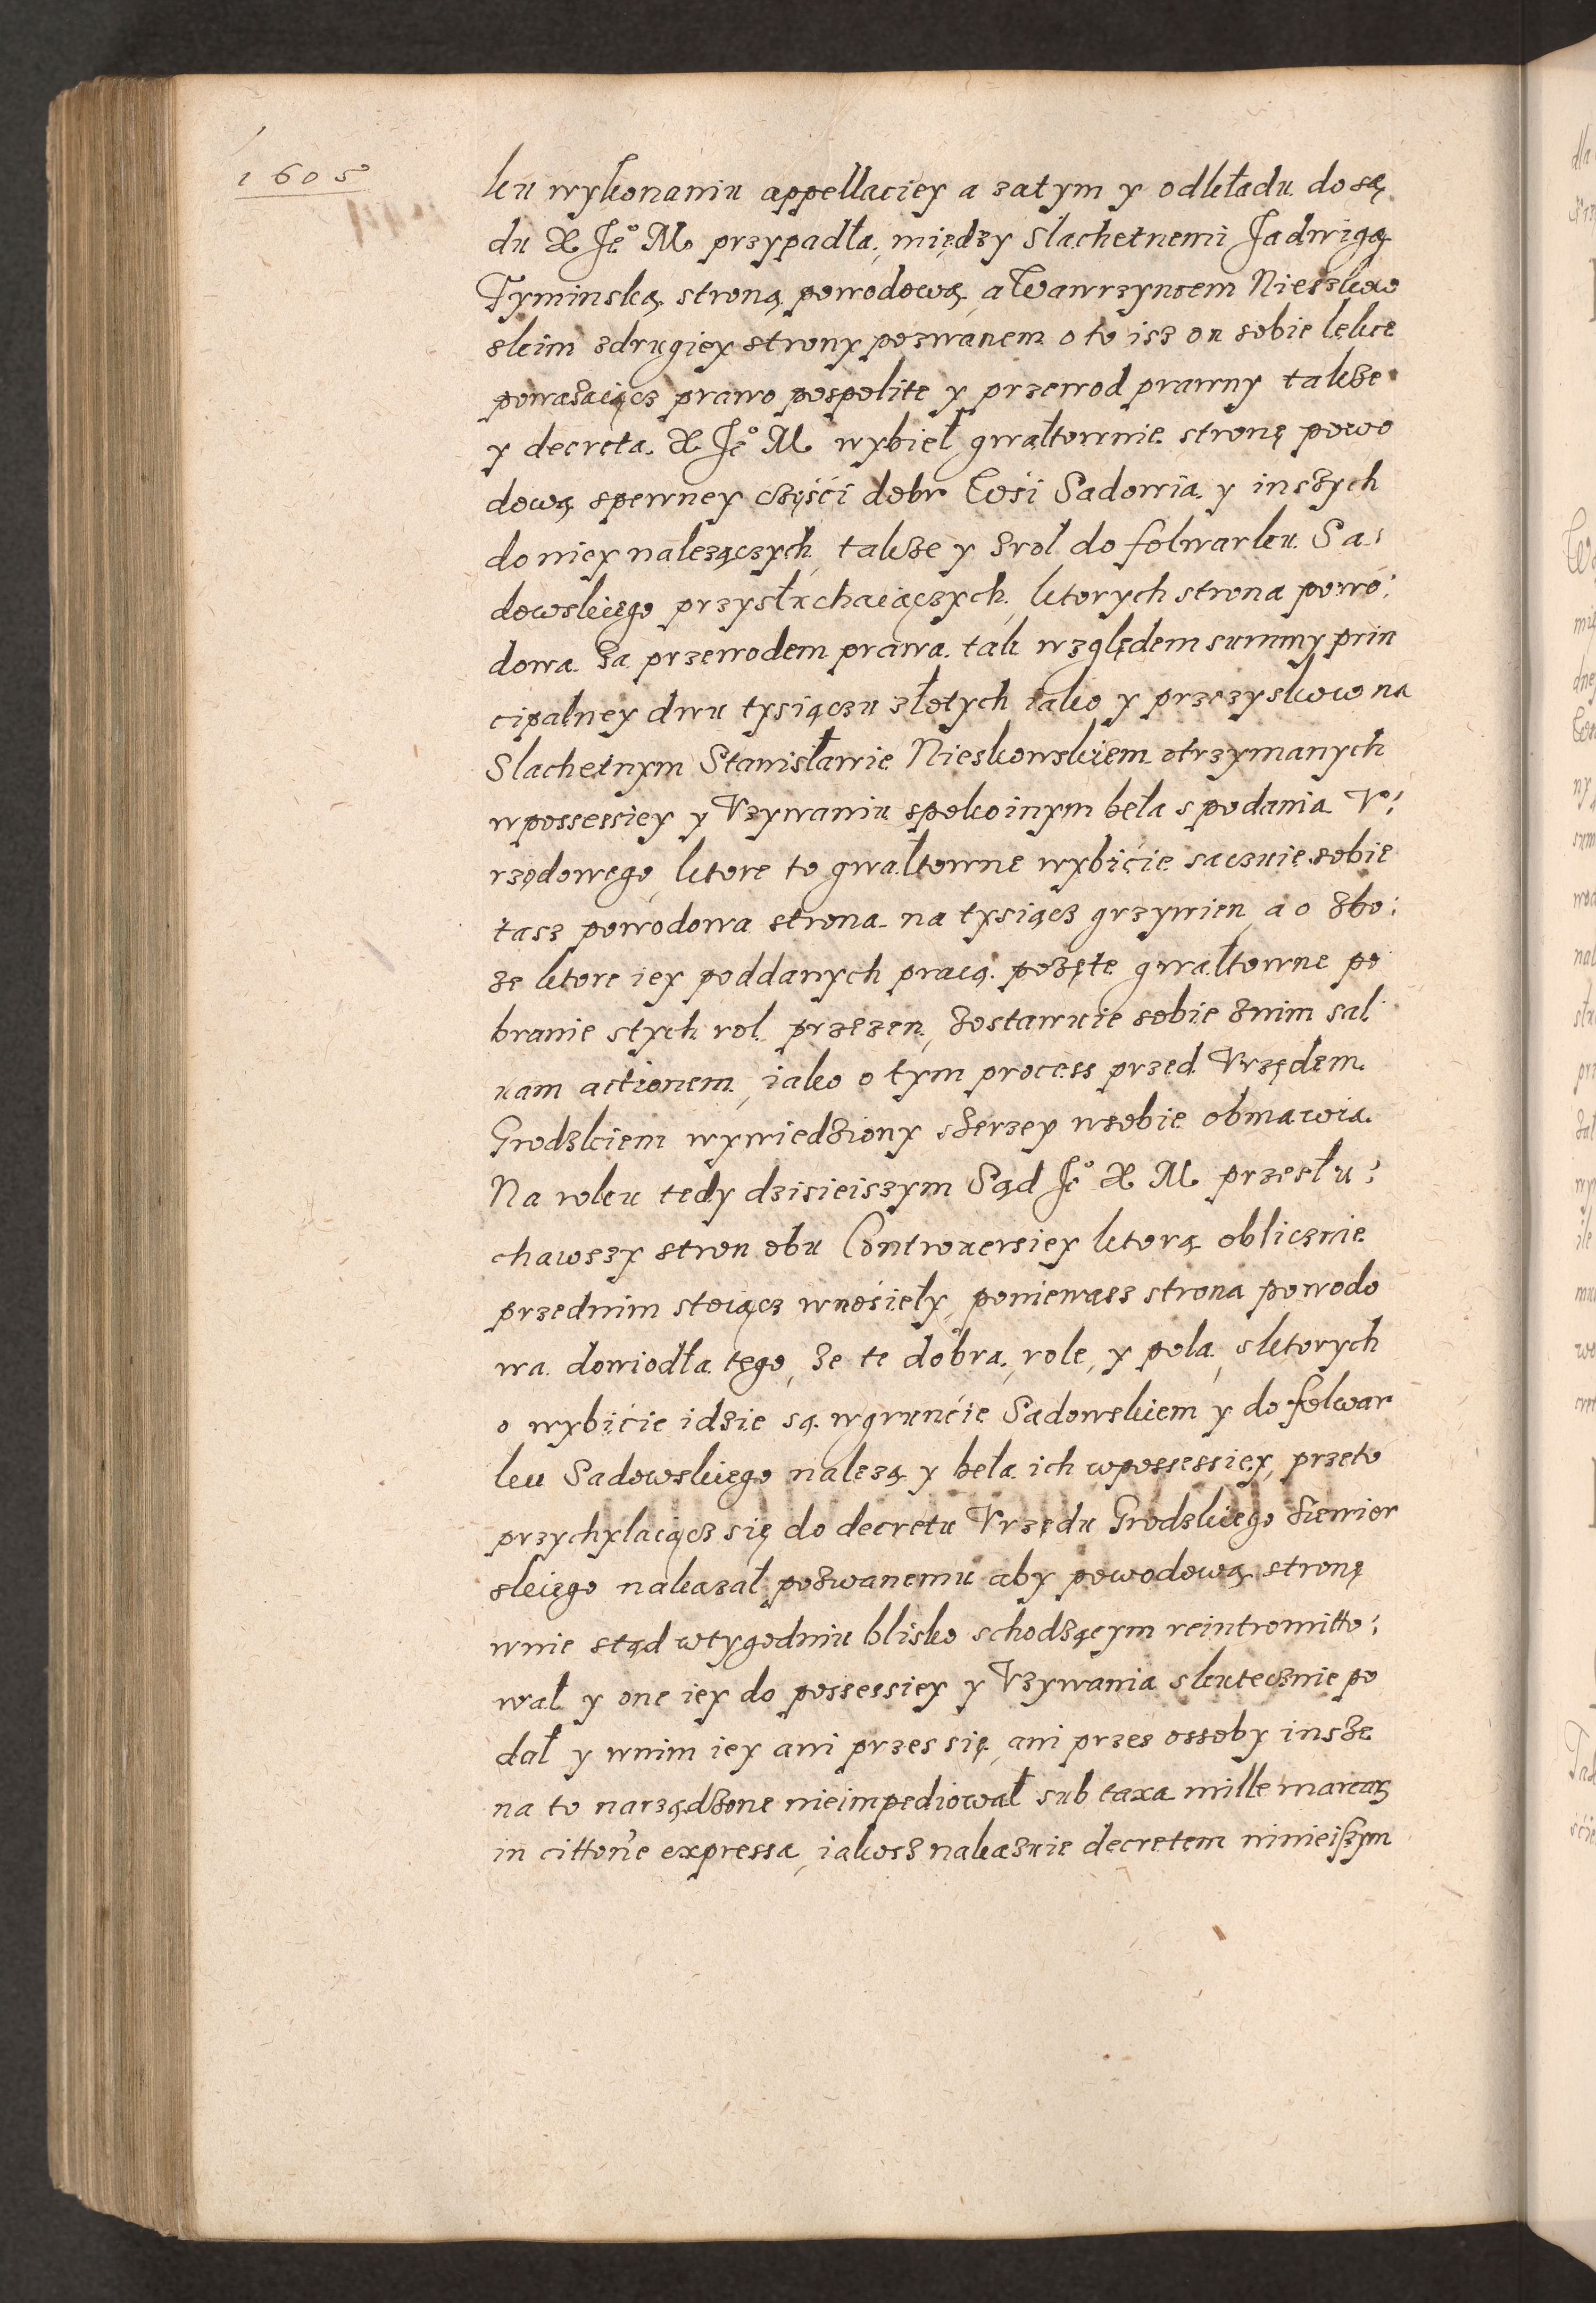 1605
ku wykonaniu appellaciey a zatym y odkładu do są
du X Jeº M przypadła, między Slachetnemi Jadwigą
Tyminską stroną powodową, a Wawrzyncem Nieszkow
skim zdrugiey strony pozwanem o to isz on sobie lekce
poważaiącz prawo pospolite y przewod prawny także
y decreta X Jeº M wybieł gwałtownie stronę powo
dową spewney części dobr Wsi Sadowia y inszych
do niey należączych, także y zrol do folwarku Sa:
dowskiego przysłuchaiączych, ktorych strona powo:
dowa za przewodem prawa tak względem summy prin
cipalney dwu tysiączu złotych iako y przezyskow na
Slachetnym Stanisławie Nieskowskiem otrzymanych
wpossessiey y Vzywaniu spokoinym beła s podania V:
rzędowego, ktore to gwałtowne wybicie sacuie sobie
tasz powodowa strona na tysiącz grzywien, a o zbo:
że ktore iey poddanych pracą pożęte gwałtowne po
branie stych rol przezen, zostawuie sobie znim sal
uam actionem, iako o tym process przed Vrzędem
Grodzkiem wywiedziony szerzey wsobie obmawia.
Na roku tedy dzisieiszym Sąd Jº X M przesłu:
chawszy stron obu Controuersiey ktorą oblicznie
przednim stoiącz wnosieły, poniewasz strona powodo
wa dowiodła tego, że te dobra, role, y pola, sktorych
o wybicie idzie są wgruncie Sadowskiem y do folwar
ku Sadowskiego należą y beła ich wpossessiey, przeto
przychylaiącz się do decretu Vrzędu Grodzkiego Siewior
skiego nakazał pozwanemu aby powodową stronę
wnie stąd wtygodniu blisko schodzącym reintromitto:
wał y one iey do possessiey y Vzywania skutecznie po
dał y wnim iey ani przes się, ani przes ossoby insze
na to narządzone nieimpediował sub taxa mille marcaɣ
in citton̄e expressa, iakosz nakazuie decretem ninieiszym